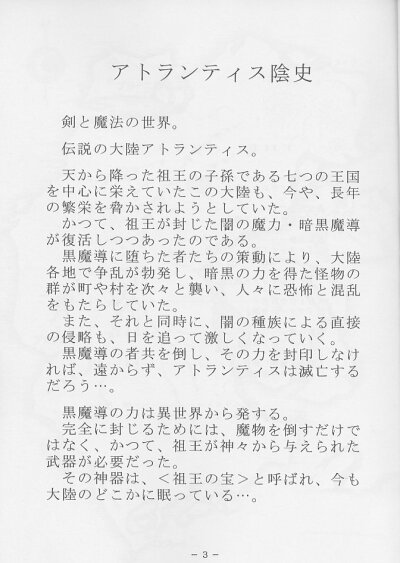 アトランティス陰史
剣と魔法の世界。
伝説の大陸アトランティス。
天から降った祖王の子孫である七つの王国
を中心に栄えていたこの大陸も、今や、長年
の繁栄を脅かされようとしていた。
かつて、祖王が封じた闇の魔力・暗黒魔導
が復活しつつあったのである。
黒魔導に堕ちた者たちの策動により、大陸
各地で争乱が勃発し、暗黒の力を得た怪物の
群が町や村を次々と襲い、人々に恐怖と混乱
をもたらしていた。
また、それと同時に、闇の種族による直接
の侵略も、日を追って激しくなっていく。
黒魔導の者共を倒し、その力を封印しなけ
れば、遠からず、アトランティスは滅亡する
だろう…。
黒魔導の力は異世界から発する。
完全に封じるためには、魔物を倒すだけで
はなく、かつて、祖王が神々から与えられた
武器が必要だった。
その神器は、＜祖王の宝＞と呼ばれ、今も
大陸のどこかに眠っている…。
－３－